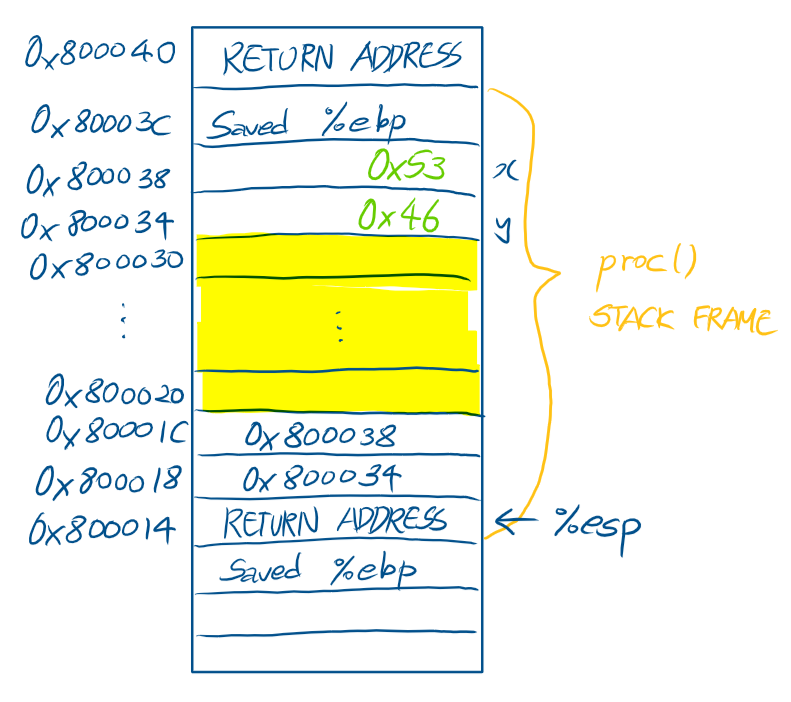 0x800040 RETURN ADDRESS
0x80003C Saved %ebp
0x800038 0x53 x
0x800034 0x46 y
0x800030
proc()
STACK FRAME
⋮ ⋮
0x800020
0x80001C 0x800038
0x800018 0x800034
0x800014 RETURN ADDRESS ← %esp
Saved %ebp